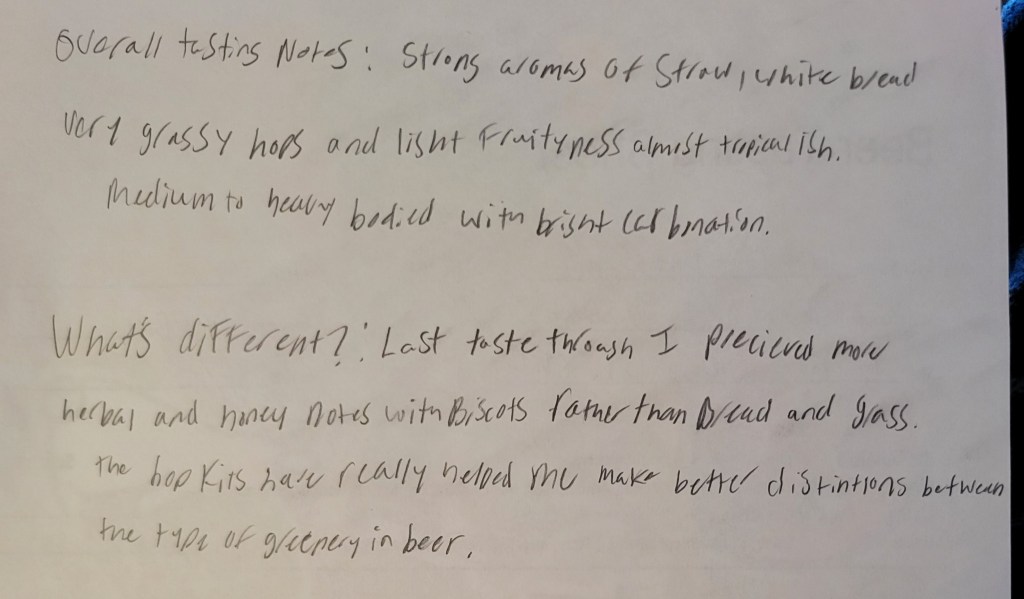 Overall tasting Notes: Strong aromas of Straw, white bread
very grassy hops and light Fruityness almost tropical ish.
Medium to heavy bodied with bright carbonation.
What's different?: Last taste through I precieved more
herbal and honey notes with Biscots rather than Bread and grass.
The hop Kits have really helped me make better distintions between
the type of greenery in beer.